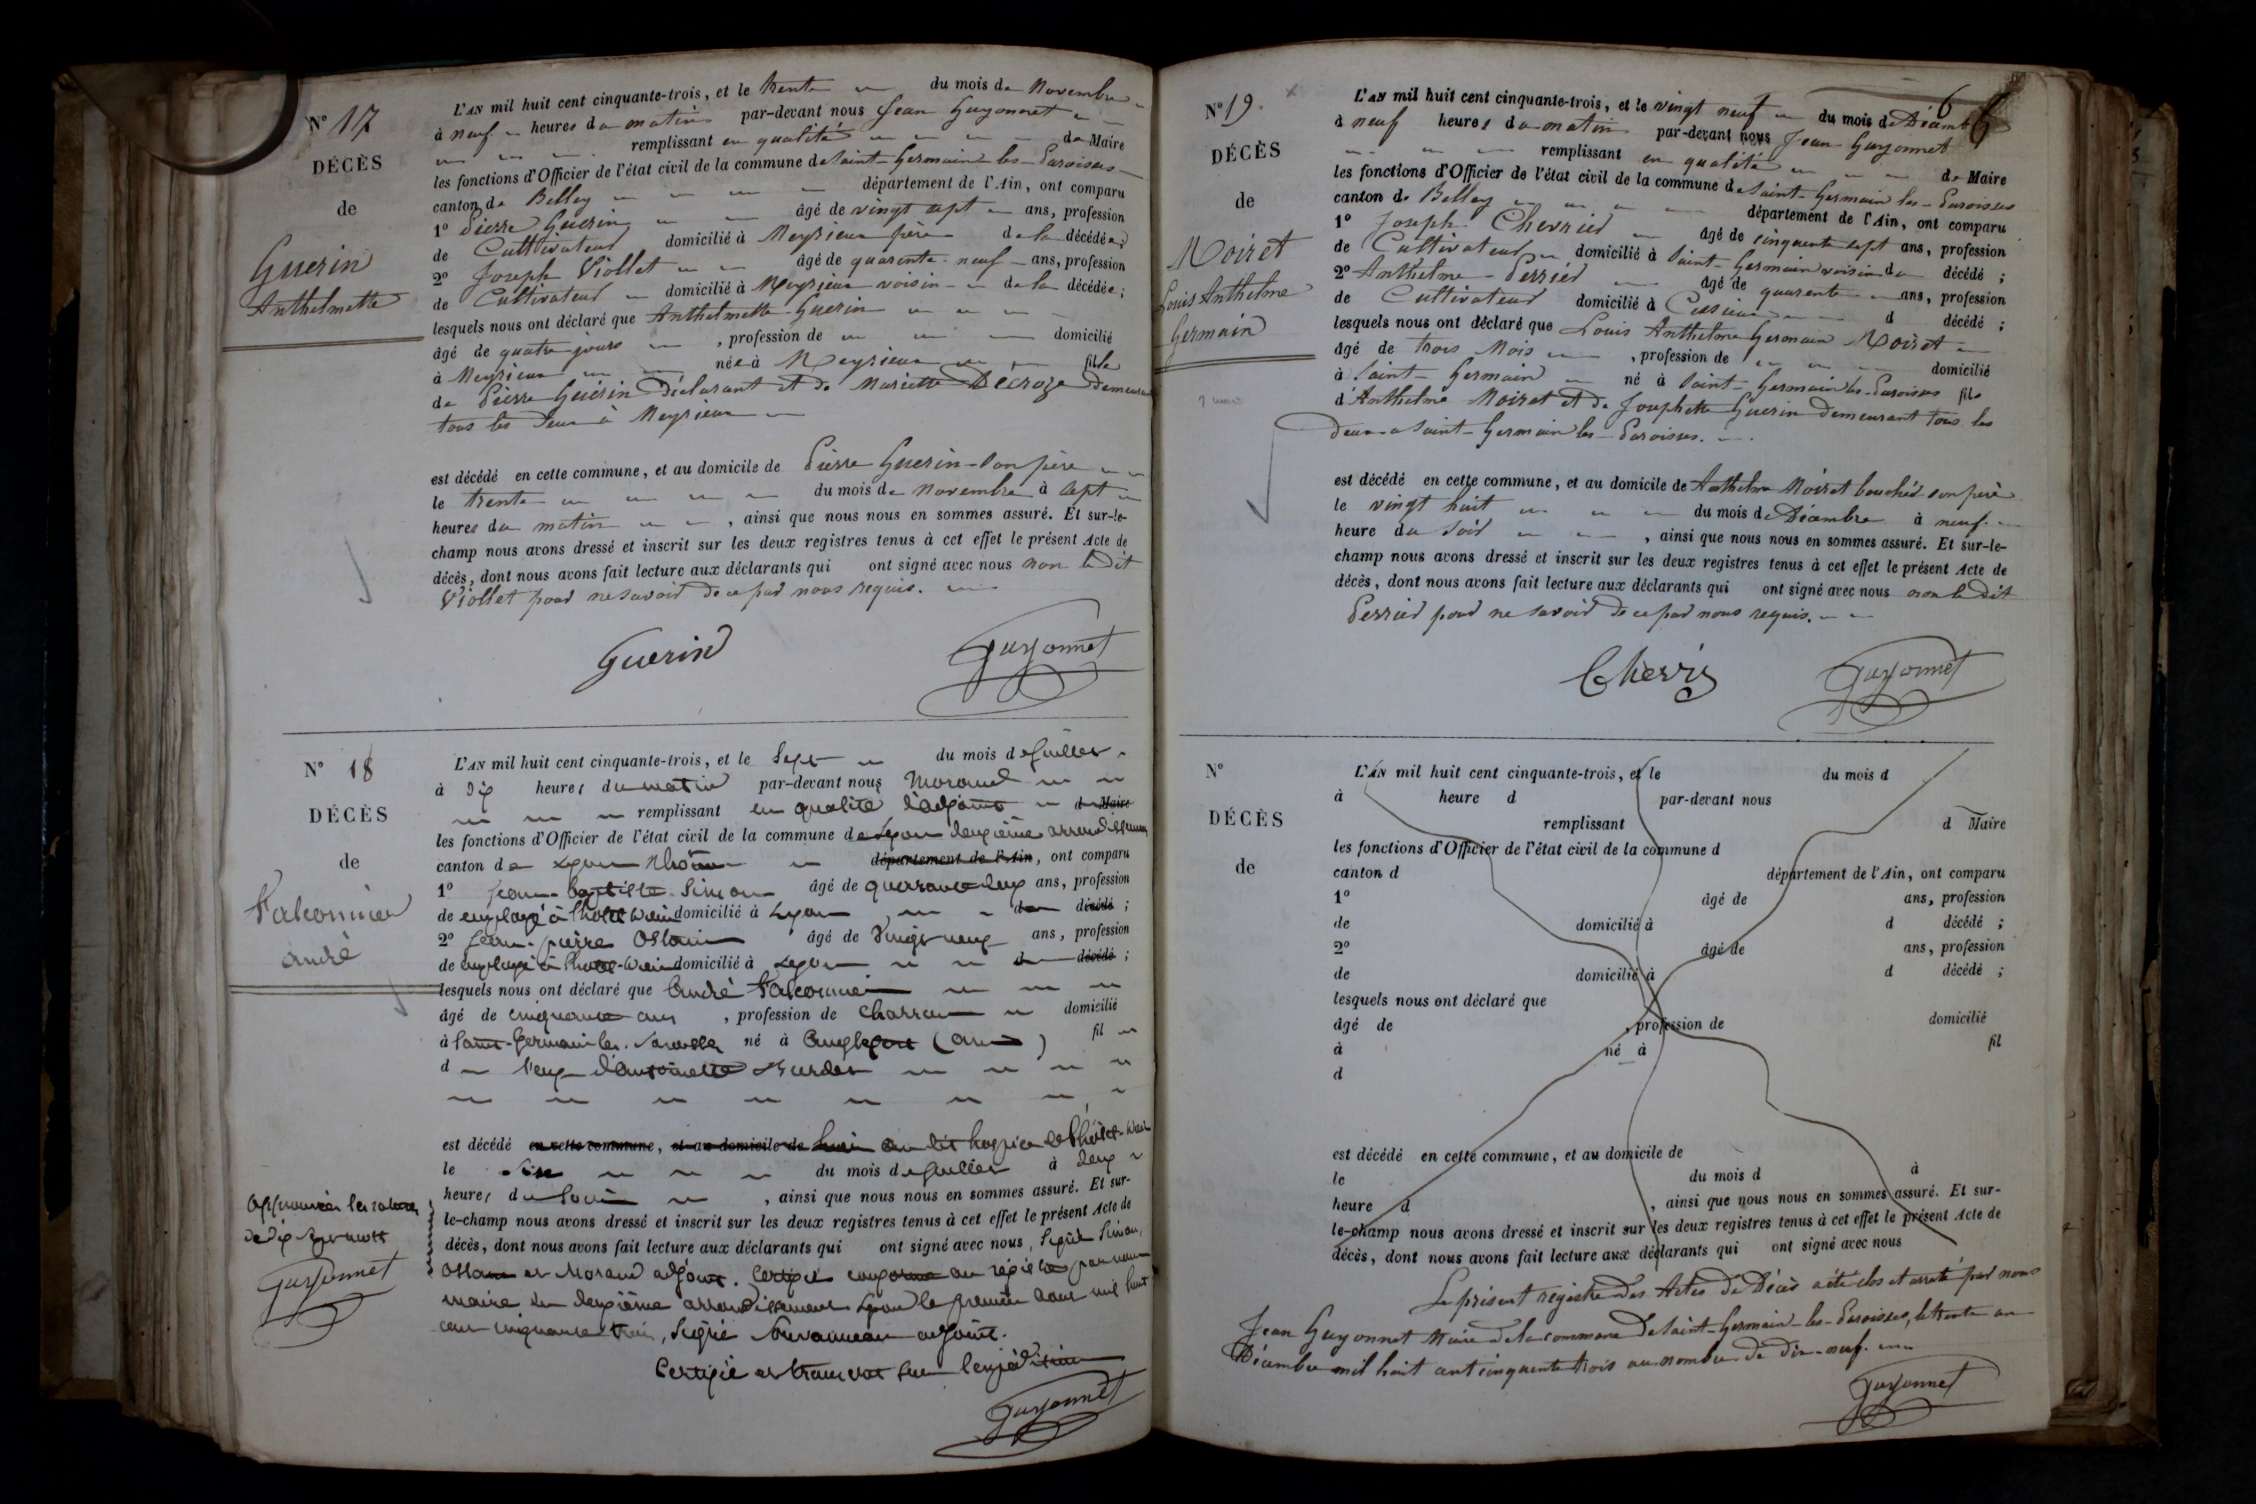 N° 17
DÉCÈS
de
Guerin
Anthelmette
L'AN mil huit cent cinquante-trois, et le trente du mois de Novembre
à neuf heures du matin par-devant nous Jean Guyonnet
remplissant en qualité de Maire
les fonctions d'Officier de l'état civil de la commune de Saint-Germain-les-Paroisses
canton de Belley département de l'Ain, ont comparu
1° Pierre Guerin âgé de vingt sept ans, profession
de Cultivateur domicilié à Meyrieux père de la décédée;
2° Joseph Viollet âgé de quarente-neuf ans, profession
de Cultivateur domicilié à Meyrieux voisin de la décédée;
lesquels nous ont déclaré que Anthelmette Guerin
âgé de quatre jours, profession de domicilié
à Meyrieux née à Meyrieux fille
de Pierre Guérin Déclarant et de Mariette Décroze demeurant
tous les deux à Meyrieux
est décédé en cette commune, et au domicile de Pierre Guerin son père
le trente du mois de Novembre à sept
heures du matin, ainsi que nous nous en sommes assuré. Et sur-le-
champ nous avons dressé et inscrit sur les deux registres tenus à cet effet le présent Acte de
décès, dont nous avons fait lecture aux déclarants qui ont signé avec nous non le dit
Viollet pour ne savoir de ce par nous requis.
Guerin Guyonnet
N° 18
DÉCÈS
de
Falconnier
andré
L'AN mil huit cent cinquante-trois, et le Sept du mois de Juillet
à dix heures du matin par-devant nous Morand
remplissant en qualité d'adjoint de Maire
les fonctions d'Officier de l'état civil de la commune de Lyon deuxième arrondissement
canton de Lyon Rhône département de l'Ain, ont comparu
1° Jean-Baptiste Simon âgé de quarante deux ans, profession
de employé à l'hotel Dieu domicilié à Lyon décédé;
2° Jean-pierre âgé de Vingt neuf ans, profession
de employé à l'hotel-Dieu domicilié à Lyon décédé;
lesquels nous ont déclaré que André Falconnier
âgé de cinquante ans, profession de Charron domicilié
à Saint-Germain les Paroisses né à Anglefort (ain) fil
d Veuf d'antoinette
est décédé en cette commune, et au domicile de hier au dit hospice de l'hôtel-Dieu
le Six du mois de Juillet à deux
heures du Soir, ainsi que nous nous en sommes assuré. Et sur-
le-champ nous avons dressé et inscrit sur les deux registres tenus à cet effet le présent Acte de
décès, dont nous avons fait lecture aux déclarants qui ont signé avec nous, Signé Simon,
et Morand adjoint. Certifié conforme au registre par nous
maire du deuxième arrondissement Lyon le premier aout mil huit
cent cinquante trois, Signé adjoint.
Certifié et transcrit sur l'expédition
Guyonnet
Approuvée les ratures
de dix mots
Guyonnet
6
N° 19.
DÉCÈS
de
Moiret
Louis Anthelme
Germain
L'AN mil huit cent cinquante-trois, et le vingt neuf du mois de Décembre
à neuf heures du matin par-devant nous Jean Guyonnet
remplissant en qualité de Maire
les fonctions d'Officier de l'état civil de la commune de Saint-Germain les-Paroisses
canton de Belley département de l'Ain, ont comparu
1° Joseph Chevrier âgé de cinquente sept ans, profession
de Cultivateur domicilié à Saint-Germain voisin du décédé;
2° Anthelme Perrier âgé de quarente ans, profession
de Cultivateur domicilié à d décédé;
lesquels nous ont déclaré que Louis Anthelme Germain Moiret
âgé de trois Mois, profession de domicilié
à Saint-Germain né à Saint-Germain les-Paroisses fils
d'Anthelme Moiret et de Josephette Guerin demeurant tous les
deux à Saint-Germain les-Paroisses.
est décédé en cette commune, et au domicile de Anthelme Moiret bouché son père
le vingt huit du mois de Décembre à neuf
heure du Soir, ainsi que nous nous en sommes assuré. Et sur-le-
champ nous avons dressé et inscrit sur les deux registres tenus à cet effet le présent Acte de
décès, dont nous avons fait lecture aux déclarants qui ont signé avec nous non le dit
Perrier pour ne savoir de ce par nous requis.
Chevrier Guyonnet
N°
DÉCÈS
de
L'AN mil huit cent cinquante-trois, et le du mois d
à heure d par-devant nous
remplissant d Maire
les fonctions d'Officier de l'état civil de la commune d
canton d département de l'Ain, ont comparu
1° âgé de ans, profession
de domicilié à d décédé;
2° âgé de ans, profession
de domicilié à d décédé;
lesquels nous ont déclaré que
âgé de, profession de domicilié
à né à fil
d
est décédé en cette commune, et au domicile de
le du mois d à
heure d, ainsi que nous nous en sommes assuré. Et sur-
le-champ nous avons dressé et inscrit sur les deux registres tenus à cet effet le présent Acte de
décès, dont nous avons fait lecture aux déclarants qui ont signé avec nous
Le présent registre des Actes de Décès a été clos et arreté par nous
Jean Guyonnet Maire de la commune de Saint-Germain-les-Paroisses, le trente un
Décembre mil huit cent cinquente trois au nombre de dix-neuf.
Guyonnet